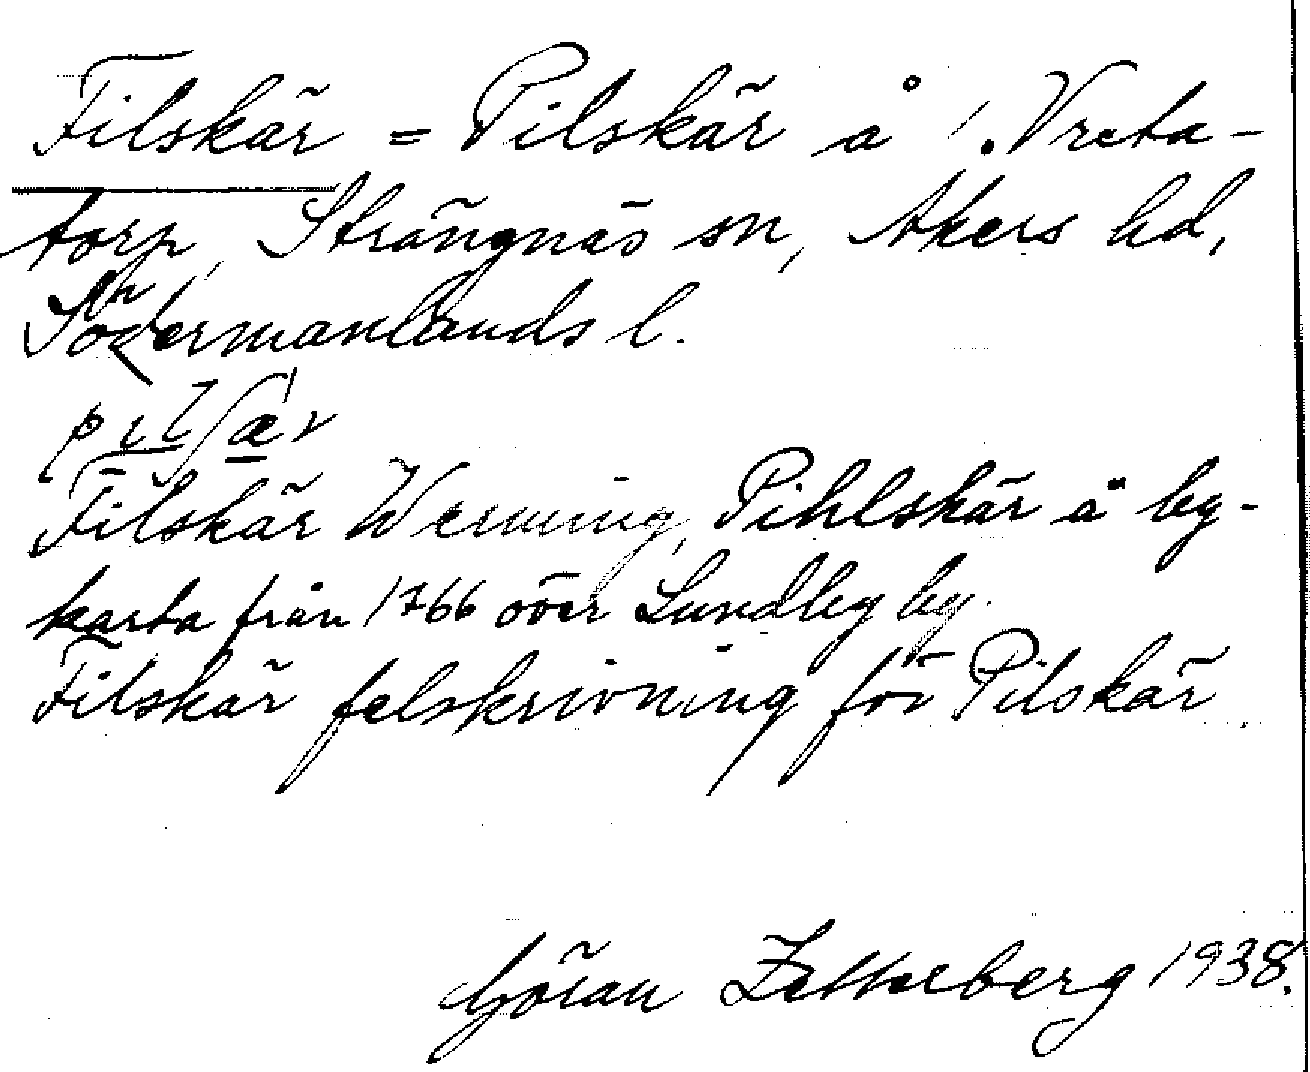 Filskär = Pilskär å 1. Vreta-
torp, Strängnäs sn, Åkers hd,
Södermanlands l.
Filskär Werming, Pihlskär å by-
karta från 1766 över Lundby by.
Filskär felskrivning för Pilskär
Göran Zetterberg 1938.